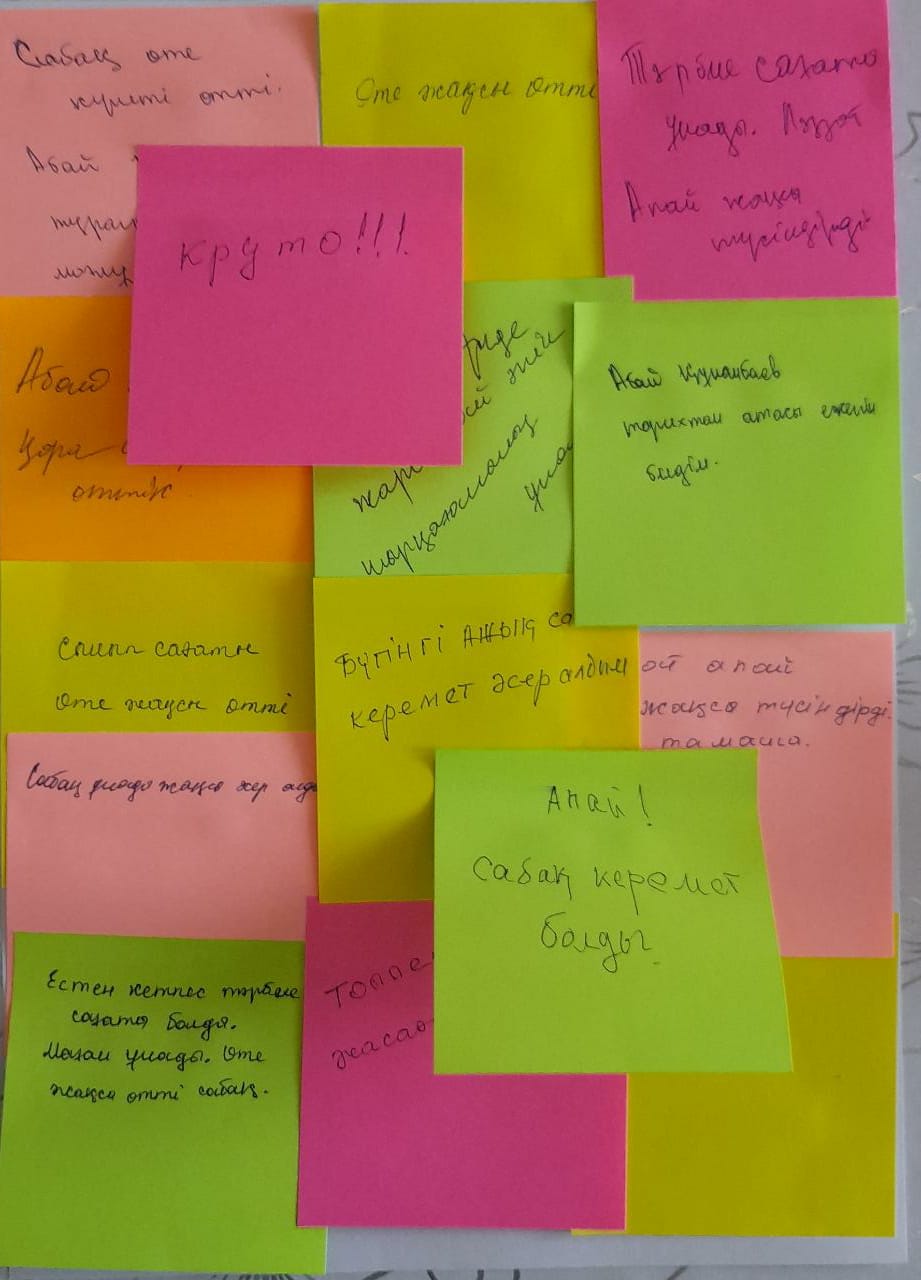 Сабақ өте
күшті өтті.
Абай
Өте жақсы өтті
Тәрбие сағаты
ұнады. Ләззат
Апай жақсы
түсіндірді
круто!!!
Абай
қара
өттік.
жар
шығармашылық
Абай Құнанбаев
тарихтан атасы екенін
білдім.
Сынып сағаты
Өте жақсы өтті
Бүгінгі Ашық са
керемет әсер алдым
ой апай
жақсы түсіндірді.
тамаша.
Сабақ ұнады жақсы әсер алды
Апай!
Сабақ керемет
болды
Естен кетпес тәрбие
сағаты болды.
Маған ұнады. Өте
жақсы өтті сабақ.
топпе
жасао